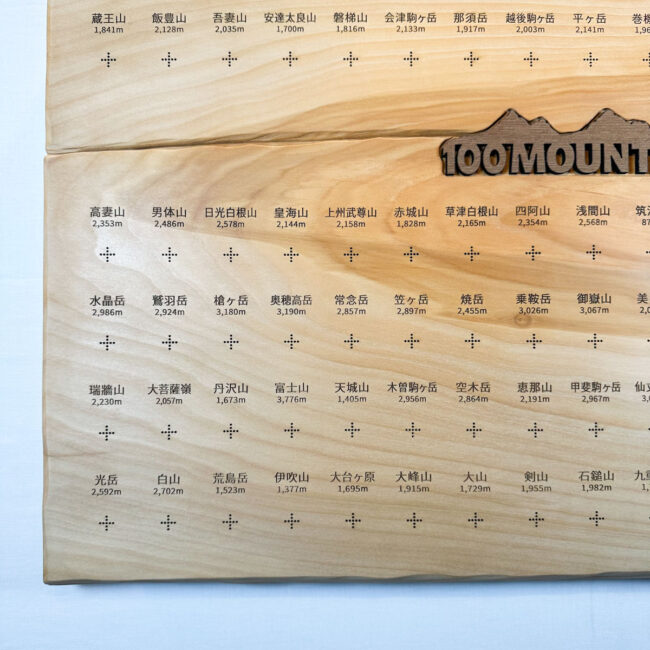 蔵王山 飯豊山 吾妻山 安達太良山 磐梯山 会津駒ヶ岳 那須岳 越後駒ヶ岳 平ヶ岳
1,841m 2,128m 2,035m 1,700m 1,816m 2,133m 1,917m 2,003m 2,141m
100MOUNT
高妻山 男体山 日光白根山 皇海山 上州武尊山 赤城山 草津白根山 四阿山 浅間山
2,353m 2,486m 2,578m 2,144m 2,158m 1,828m 2,165m 2,354m 2,568m
水晶岳 鷲羽岳 槍ヶ岳 奥穂高岳 常念岳 笠ヶ岳 焼岳 乗鞍岳 御嶽山
2,986m 2,924m 3,180m 3,190m 2,857m 2,897m 2,455m 3,026m 3,067m
瑞牆山 大菩薩嶺 丹沢山 富士山 天城山 木曽駒ヶ岳 空木岳 恵那山 甲斐駒ヶ岳
2,230m 2,057m 1,673m 3,776m 1,405m 2,956m 2,864m 2,191m 2,967m
光岳 白山 荒島岳 伊吹山 大台ヶ原 大峰山 大山 剣山 石鎚山
2,592m 2,702m 1,523m 1,377m 1,695m 1,915m 1,729m 1,955m 1,982m